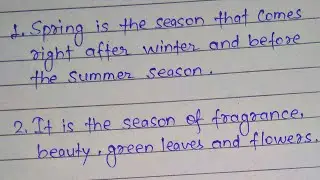 1. Spring is the season that comes
right after winter and before
the summer season.
2. It is the season of fragrance,
beauty, green leaves and flowers.